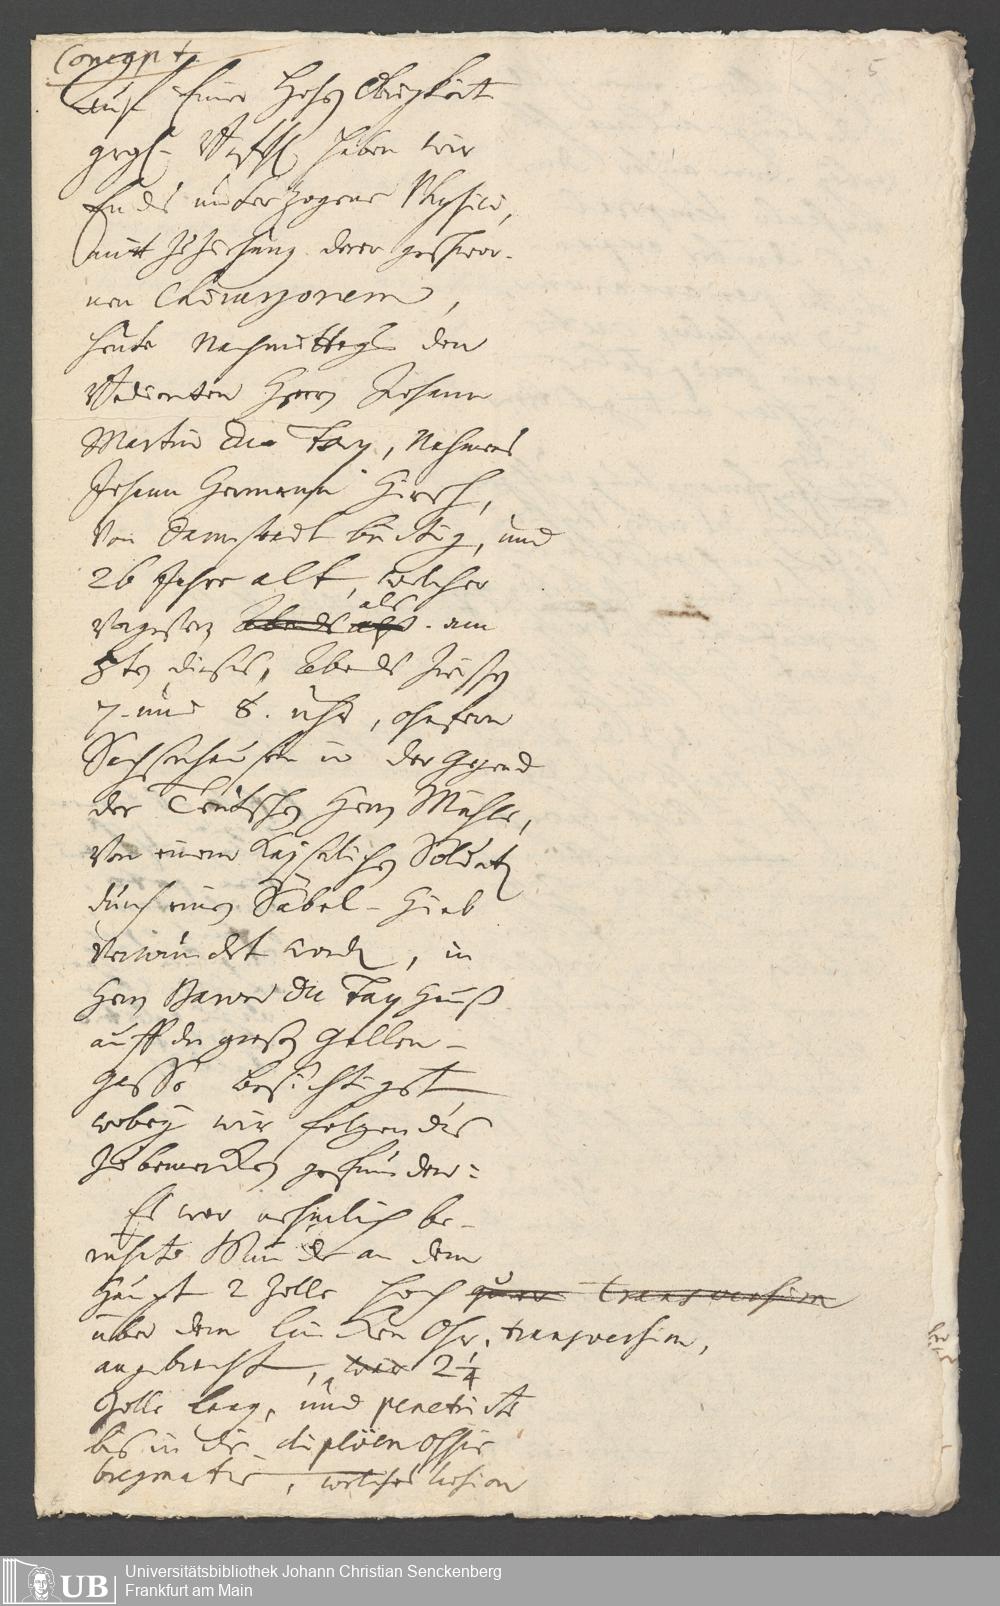 Concept.
5
Auf Einer Hohen Obrigkeit
haben wir
Ends unterzogene Physici,
mit Zuziehung derer geschwor-
nen Chirurgorum,
heute Nachmittags den
Bedienten Herrn Johann
Martin du Fay, Nahmens
Johann Hermann Hirsch,
von Darmstadt bürtig, und
26 Jahr alt, welcher
vorgestern Abends als am
8ten dieses, Abends zwischen
7 und 8. Uhr, ohnfern
Sachsenhausen in der Gegend
der Teutschen Herrn Mühle,
von einem Kayserlichen Soldaten
durch einen Säbel-Hieb
verwundet worden, in
Herrn du Fay Hauß
auff der großen Gallen-
gasse besichtiget,
wobey wir folgendes
zu bemercken gefunden:
Es war nehmlich be-
rührte Wunde an dem
Haupt 2 Zolle hoch quer transversim
über dem lincken Ohr, transversim,
angebracht, war 2 1/4
Zolle lang, und penetrirte
bis in die diploën ossis
bregmatis, welches laesion
Universitätsbibliothek Johann Christian Senckenberg
Frankfurt am Main
UB